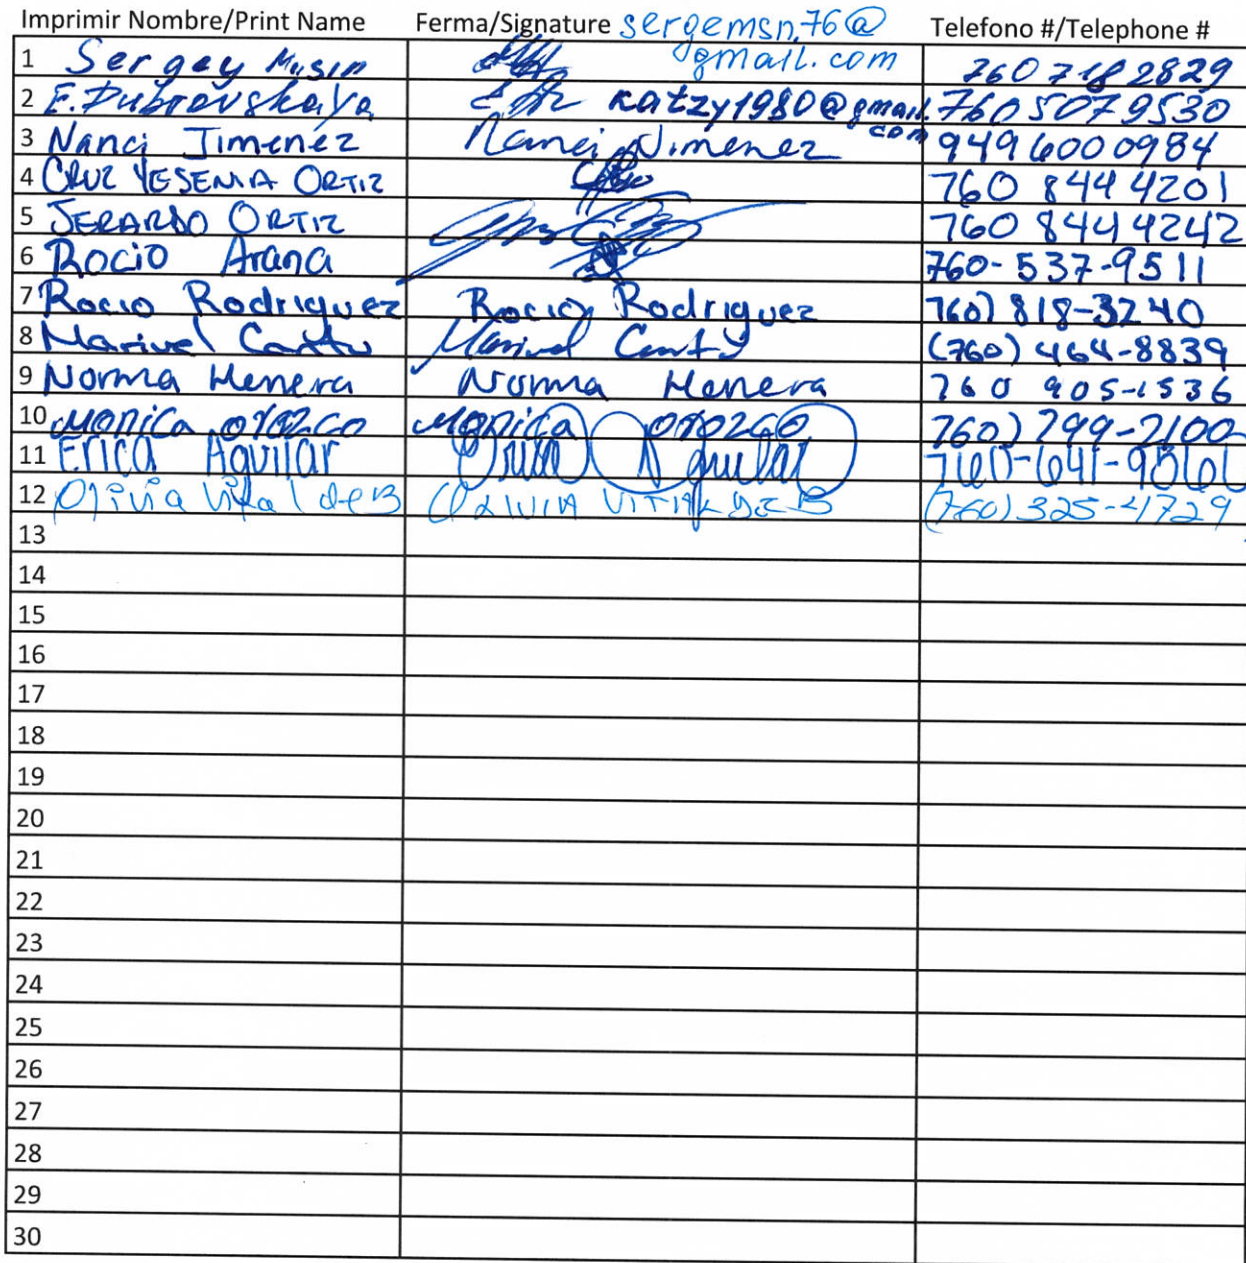 Imprimir Nombre/Print Name Ferma/Signature sergemsn76@ Telefono #/Telephone #
gmail.com
1 Sergey Musin 760 718 2829
2 E. Dubrovskaya katzy1980@gmail.com 760 507 9530
3 Nanci Jimenez Nanci Jimenez 949 600 0984
4 CRUZ YESENIA ORTIZ 760 844 4201
5 JERARDO ORTIZ 760 844 4242
6 Rocio Arana 760-537-9511
7 Rocio Rodriguez Rocio Rodriguez 760) 818-3240
8 Marivel Cantu Marivel Cantu (760) 464-8839
9 Norma Herrera Norma Herrera 760 905-1536
10 Monica orozco Monica orozco 760) 799-2100
11 Erica Aguilar Erica Aguilar
12 Olivia (760) 325-4729
13
14
15
16
17
18
19
20
21
22
23
24
25
26
27
28
29
30